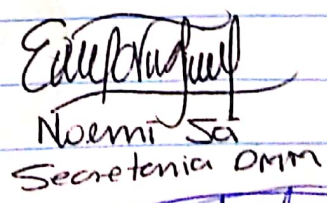 Noemi Sá
Secretaria OMM